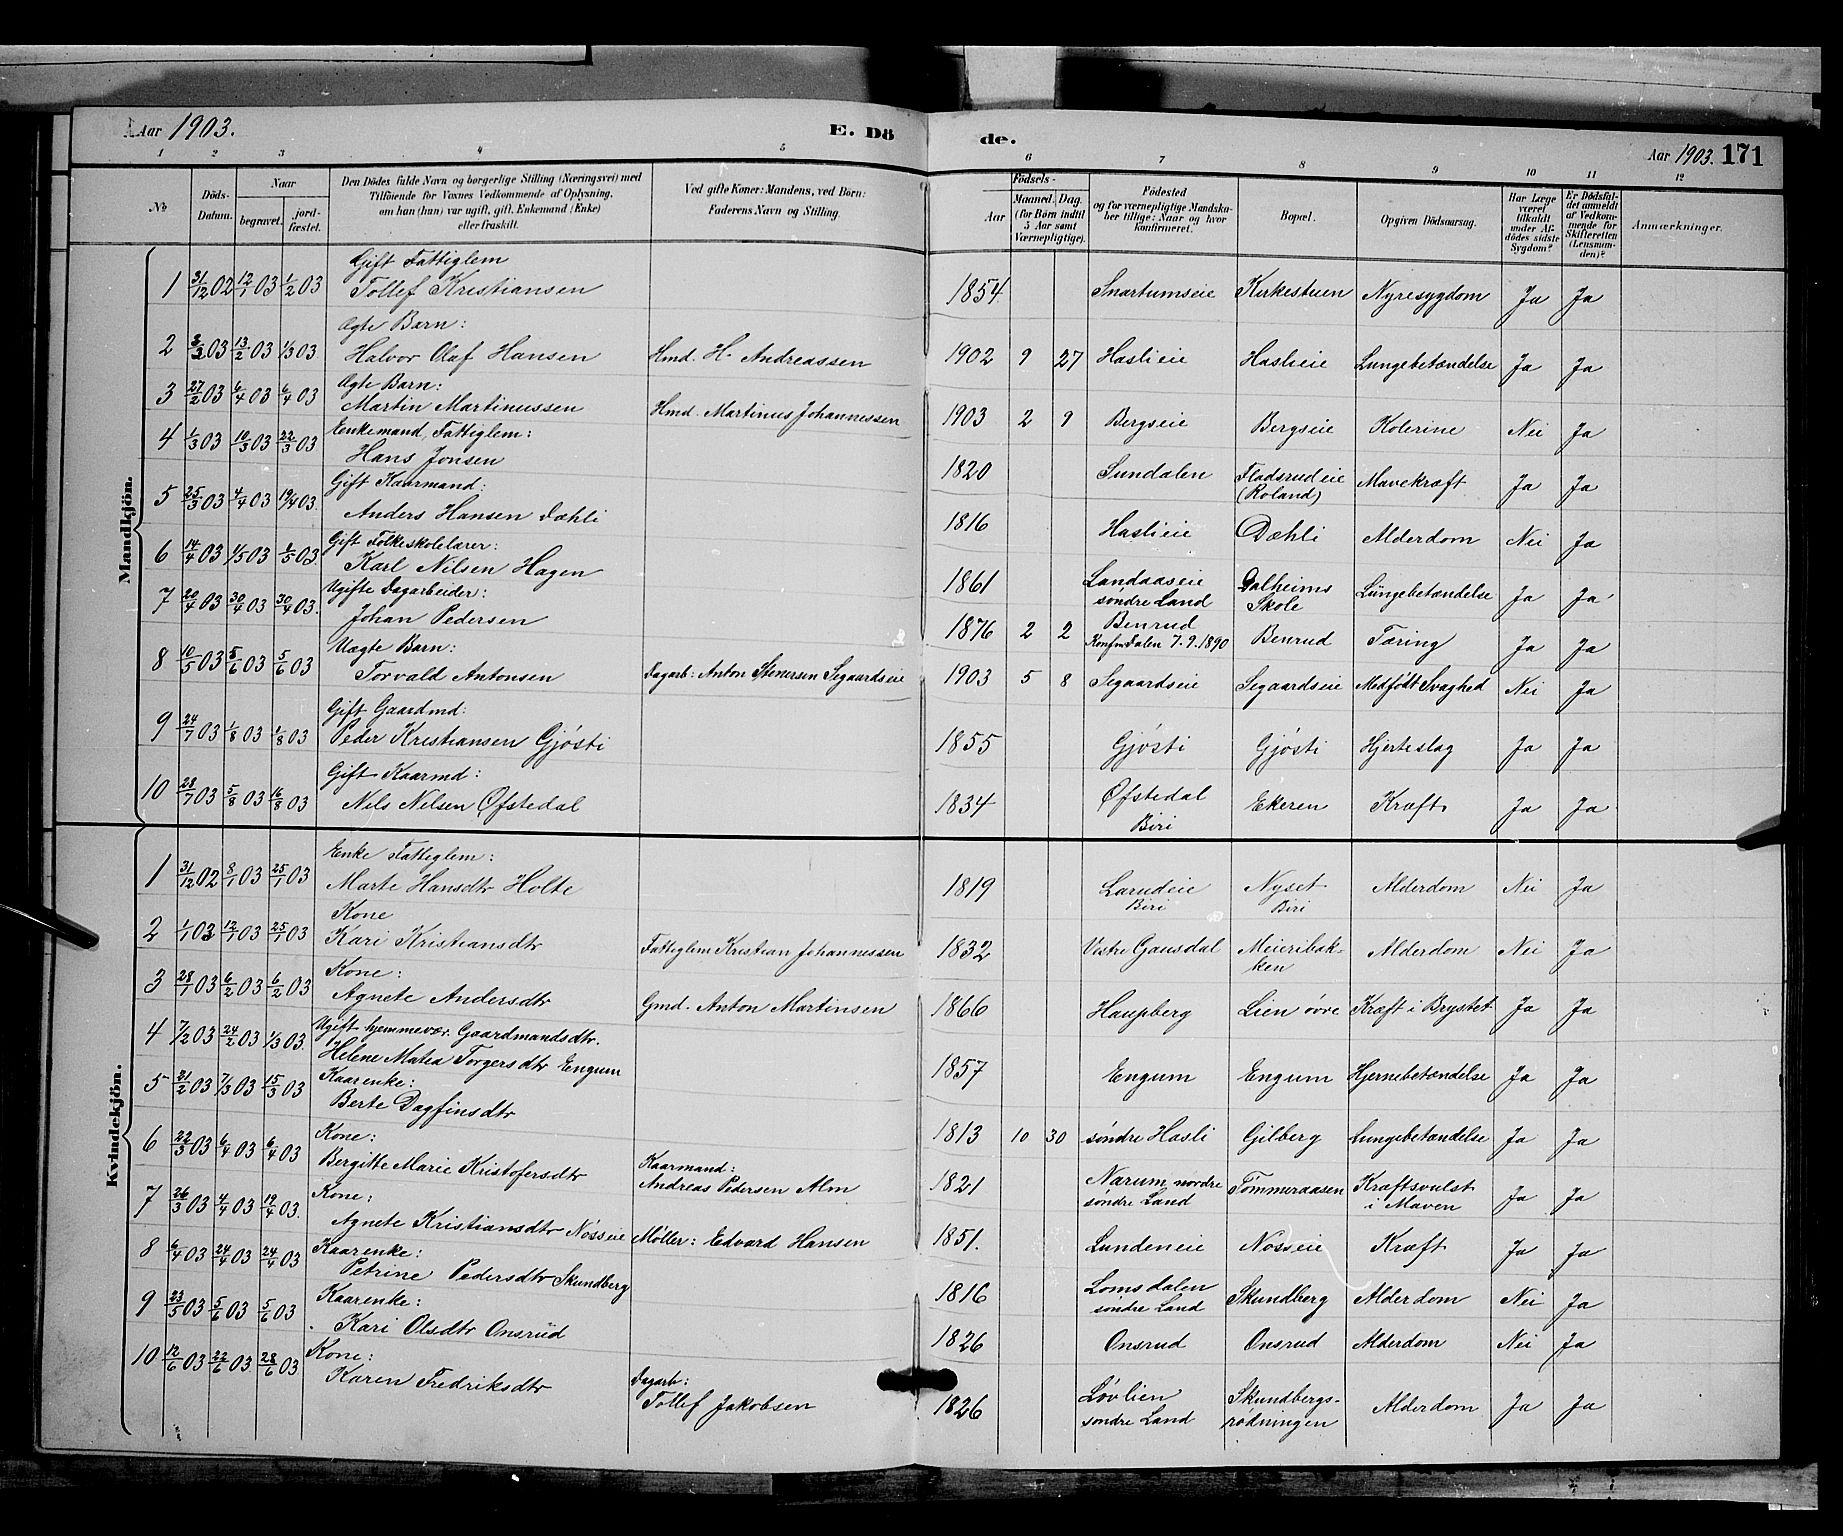 Aar 1903. E. Dö de. Aar 1903. 171
1 2 3 4 5 6 7 8 9 10 11 12
No
Döds-Datum.
Naar
begravet.
jord-fæstet.
Den Dödes fulde Navn og borgerlige Stilling (Næringsvei) med
Tilföiende for Voxnes Vedkommende af Oplysning,
om han (hun) var ugift, gift, Enkemand (Enke)
eller fraskilt.
Ved gifte Koner: Mandens, ved Børn:
Faderens Navn og Stilling.
Födsels-
Aar
Maaned. Dag.
(for Börn indtil
5 Aar samt
Værnepligtige).
Födested
og for værnepligtige Mandska-
ber tillige: Naar og hvor
konfirmeret.
Bopæl.
Opgiven Dödsaarsag.
Har Læge
været
tilkaldt
under Af-
dödes sidste
Sygdom?
Er Dödsfal-
det anmeldt
af Vedkom-
mende for
Skifteretten
(Lensman-
den)?
Anmærkninger.
Mandkjön.
Gift Fattiglem
1 31/12 02 12/1 03 1/2 03 Tollef Kristiansen 1854 Snartumseie Kirkestuen Nyresygdom Ja Ja
Ægte Barn:
2 3/2 03 13/2 03 1/3 03 Halvor Olaf Hansen Hmd. H. Andreassen 1902 9 27 Haslieie Haslieie Lungebetændelse Ja Ja
Ægte Barn:
3 27/2 03 6/4 03 6/4 03 Martin Martinussen Hmd. Martinus Johannessen 1903 2 9 Bergseie Bergseie Kolerine Nei Ja
Enkemand, Fattiglem:
4 1/3 03 10/3 03 22/3 03 Hans Jonsen 1820 Sundalen Fladsrudeie (Roland) Mavekræft Ja Ja
Gift Kaarmand:
5 25/3 03 4/4 03 19/4 03 Anders Hansen Dæhli 1816 Haslieie Dæhli Alderdom Nei Ja
Gift Folkeskolelærer:
6 14/4 03 1/5 03 1/5 03 Karl Nilsen Hagen 1861 Landaaseie søndre Land Dalheims Skole Lungebetændelse Ja Ja
Ugifte Dagarbeider:
7 20/4 03 30/4 03 30/4 03. Johan Pedersen 1876 2 2 Benrud Konf. Dalen 7.9.1890 Benrud Tæring Ja Ja
Uægte Barn:
8 10/5 03 5/6 03 5/6 03 Torvald Antonsen Dagarb: Anton Stenersen Segaardseie 1903 5 8 Segaardseie Segaardseie Medfødt Svaghed Nei Ja
Gift Gaardmd:
9 24/7 03 1/8 03 1/8 03 Peder Kristiansen Gjøsti 1855 Gjøsti Gjøsti Hjerteslag Ja Ja
Gift Kaarmd:
10 28/7 03 5/8 03 16/8 03 Nils Nilsen Øfstedal 1834 Øfstedal Biri Ekeren Kræft Ja Ja
Kvindekjön.
Enke Fattiglem:
1 31/12 02 8/1 03 25/1 03 Marte Hansdtr Holte 1819 Larudeie Biri Nyset Biri Alderdom Nei Ja
Kone
2 1/1 03 12/1 03 25/1 03 Kari Kristiansdtr Fattiglem Kristian Johannessen 1832 Vestre Gausdal Meieribakken Alderdom Nei Ja
Kone:
3 28/1 03 6/2 03 6/2 03 Agnete Andersdtr Gmd. Anton Martinsen 1866 Haugsberg Lien øvre Kræft i Brystet Ja Ja
Ugift hjemmevær. Gaardmandsdtr.
4 7/2 03 24/2 03 1/3 03. Helene Matea Torgersdtr Engum 1857 Engum Engum Hjernebetændelse Ja Ja
Kaarenke:
5 21/2 03 7/3 03 15/3 03 Berte Dagfinsdtr 1813 10 30 søndre Hasli Gilberg Lungebetændelse Ja Ja
Kone:
6 22/3 03 6/4 03 6/4 03 Bergitte Marie Kristofersdtr Kaarmand: Andreas Pedersen Alm 1821 Narum nordre søndre Land Tømmeraasen Kræftsvulst i Maven Ja Ja
Kone:
7 26/3 03 4/4 03 19/4 03. Agnete Kristiansdtr Nøsseie Møller: Edvard Hansen 1851. Lundeneie Nøsseie Kræft Ja Ja
Kaarenke:
8 6/4 03 24/4 03 24/4 03 Petrine Pedersdtr Skundberg 1816 Lomsdalen søndre Land Skundberg Alderdom Nei Ja
Kaarenke:
9 23/5 03 5/6 03 5/6 03 Kari Olsdtr Onsrud 1826 Onsrud Onsrud Alderdom Nei Ja
Kone:
10 12/6 03 22/6 03 28/6 03 Karen Fredriksdtr Dagarb: Tollef Jakobsen 1826 Løvlien søndre Land Skundbergsrødningen Alderdom Ja Ja